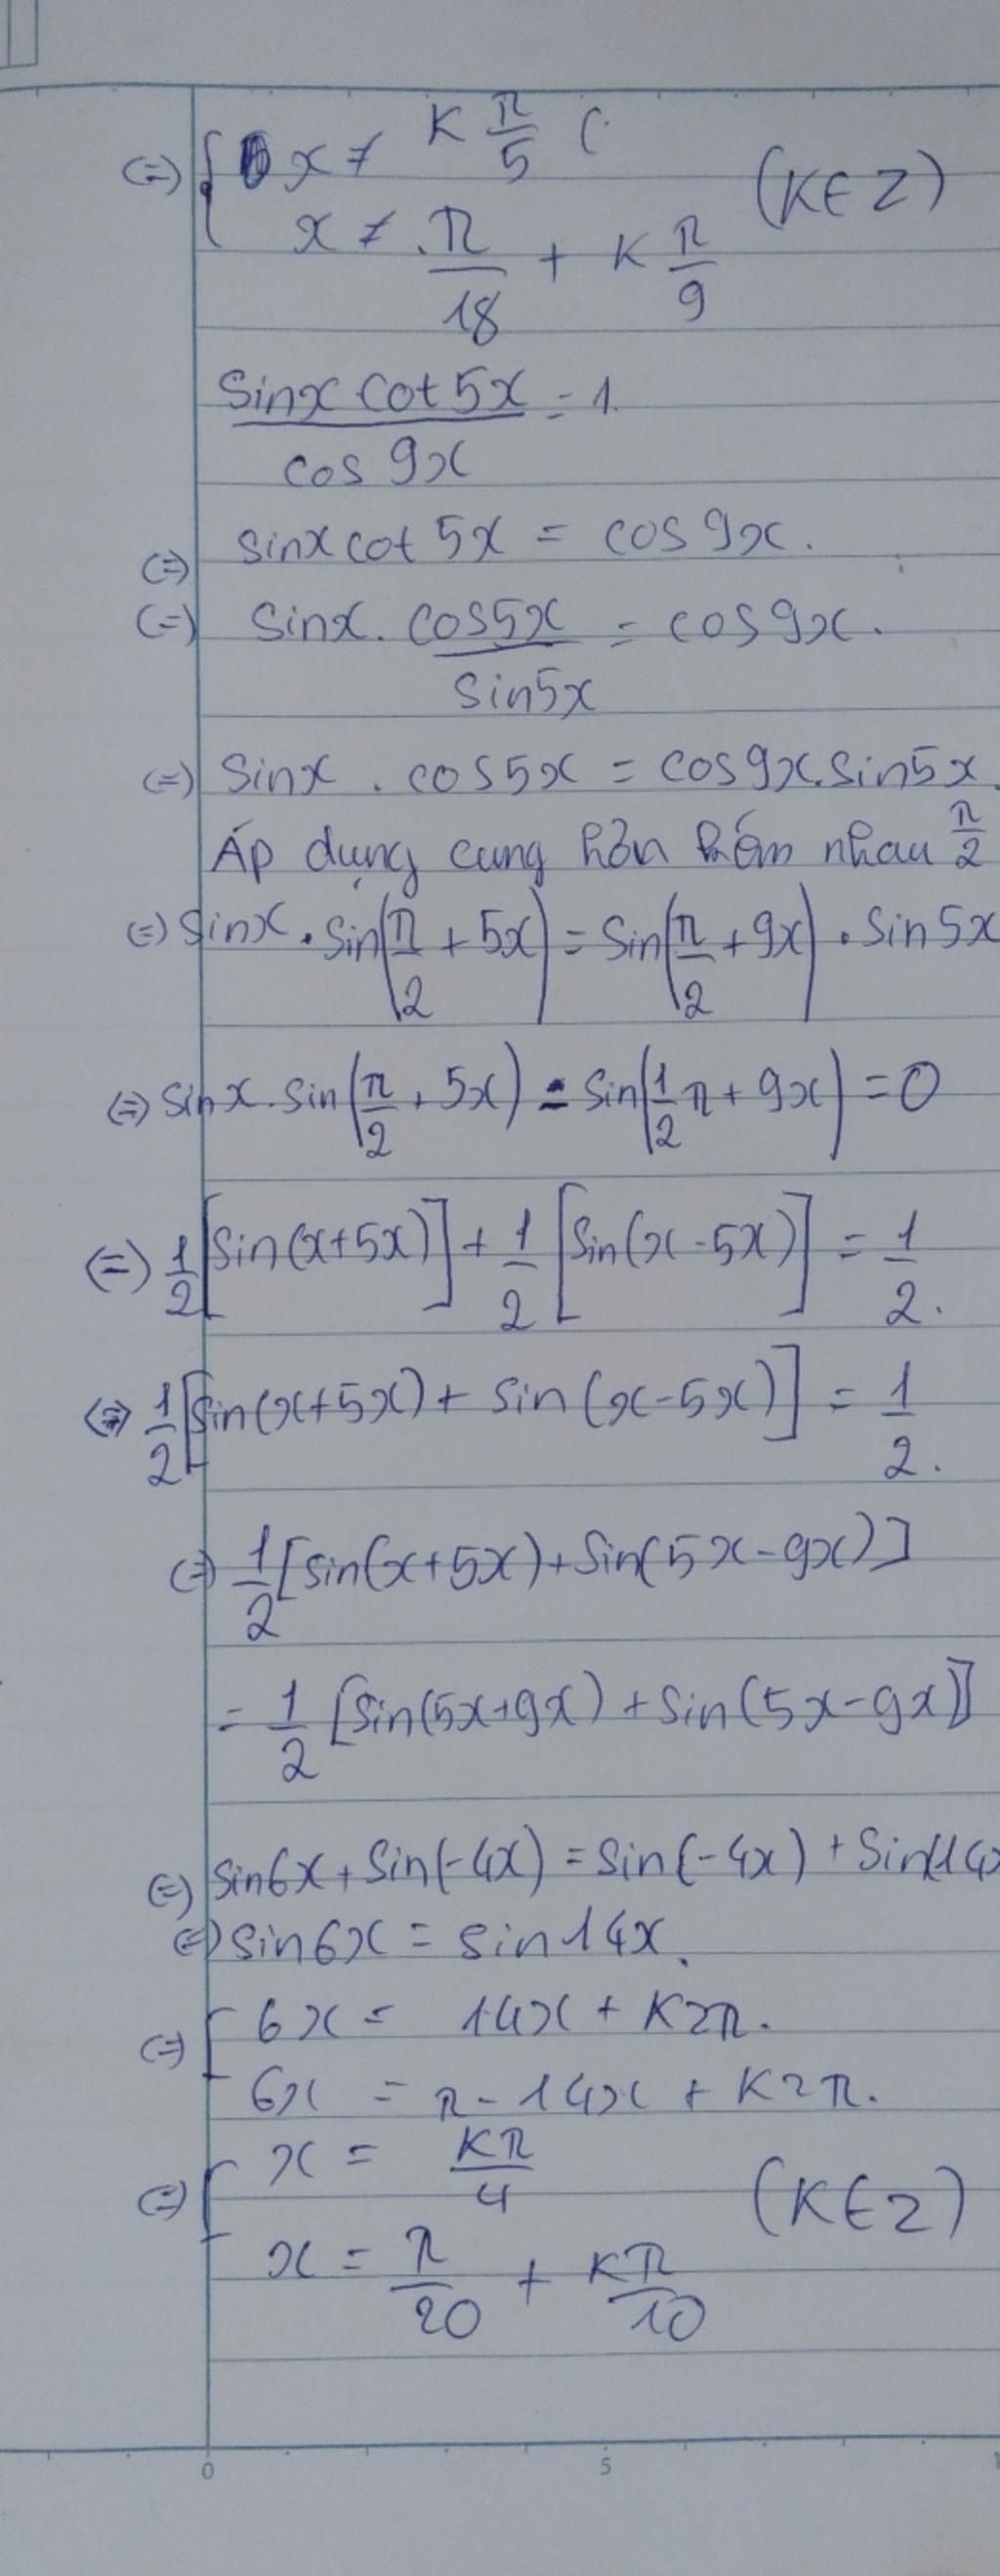 (=) { x ≠ K π/5 (
x ≠ π/18 + K π/9 (K ∈ Z)
sinx cot 5x / cos 9x = 1.
(=) sinx cot 5x = cos 9x.
(=) sinx. cos5x / sin5x = cos 9x.
(=) sinx . cos5x = cos9x.sin5x.
Áp dụng cung hơn kém nhau π/2
(=) sinx . sin(π/2 + 5x) = sin(π/2 + 9x) . sin 5x
(=) sin x . sin(π/2 + 5x) - sin(1/2 π + 9x) = 0
(=) 1/2 [sin(x+5x)] + 1/2 [sin(x-5x)] = 1/2.
(=) 1/2 [sin(x+5x) + sin(x-5x)] = 1/2.
(=) 1/2 [sin(x+5x)+sin(5x-9x)]
= 1/2 [sin(5x+9x) + sin(5x-9x)]
(=) sin6x + sin(-4x) = sin(-4x) + sin(14x
(=) sin6x = sin14x.
(=) [ 6x = 14x + K2π.
6x = π - 14x + K2π.
(=) [ x = Kπ/4
x = π/20 + Kπ/10 (K ∈ Z)
0 5